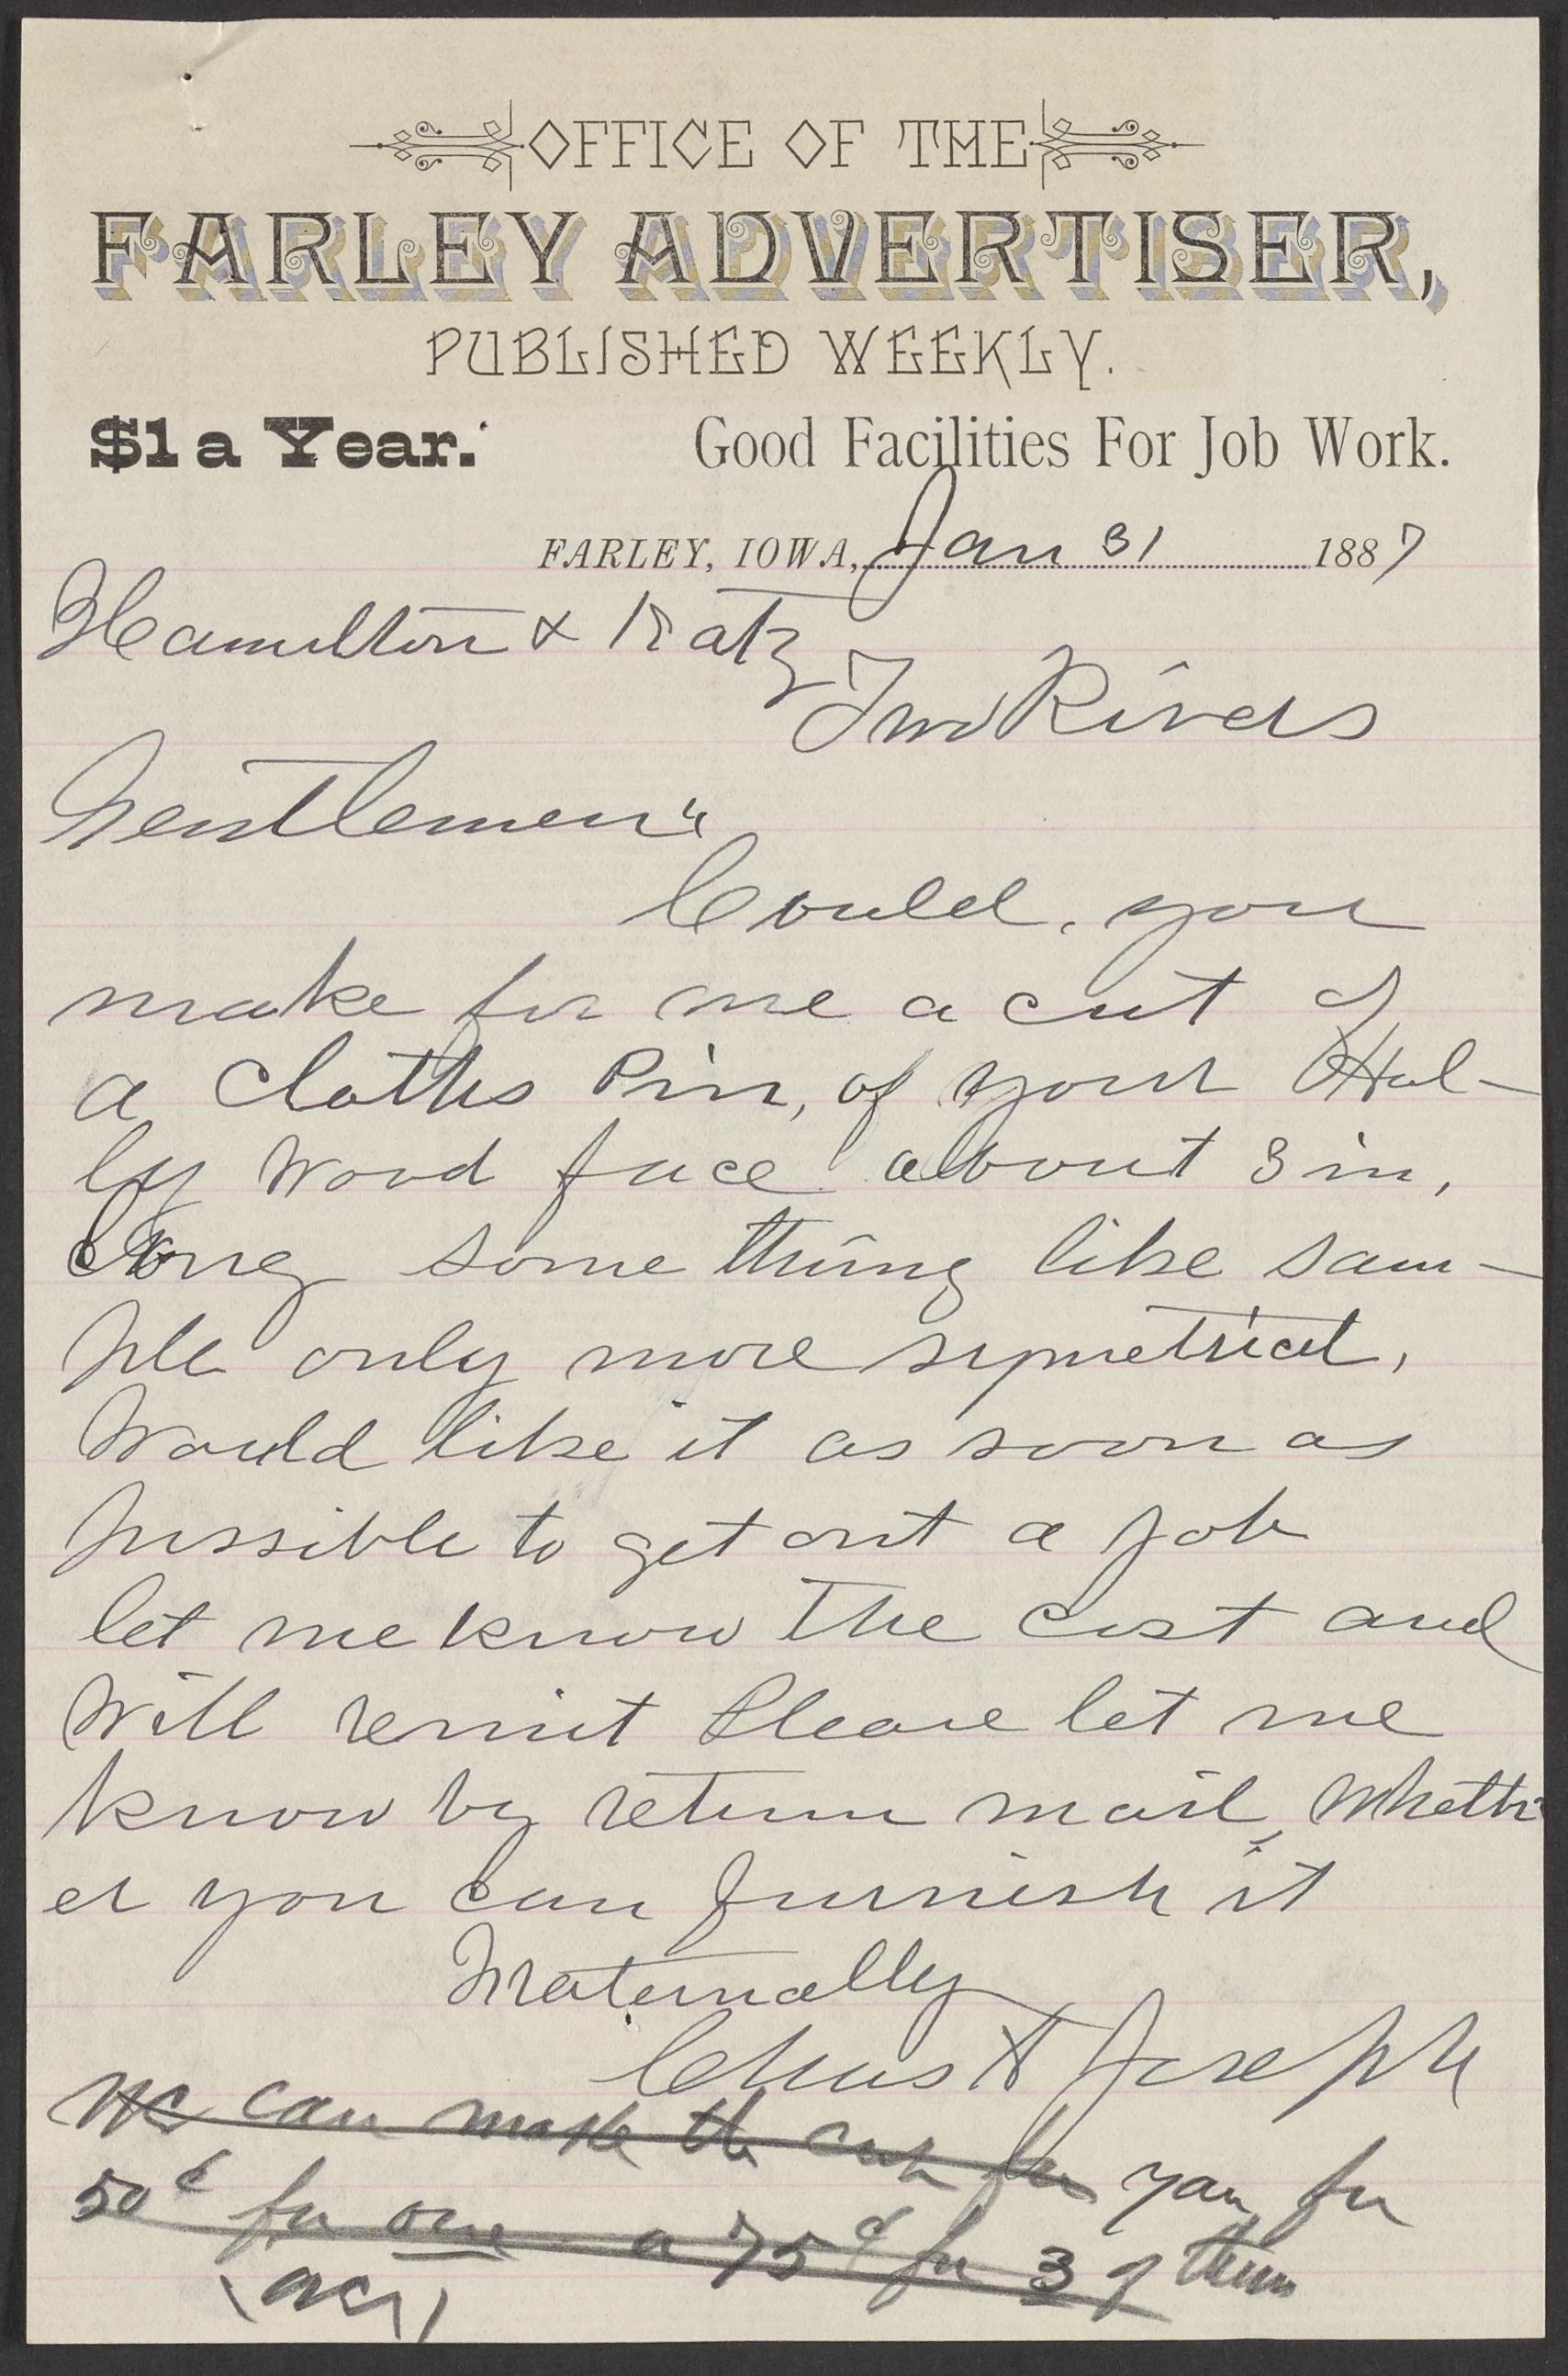 OFFICE OF THE
FARLEY ADVERTISER,
PUBLISHED WEEKLY.
$1 a Year. Good Facilities For Job Work.
FARLEY, IOWA, Jan 31 1887
Hamilton & Katz
Two Rivers
Gentlemen:
Could, you
make for me a cut of
a Cloths Pin, of your Hol-
ly Wood face about 3 in,
long some thing like sam-
ple only more symetrical,
Would like it as soon as
possible to get out a job
let me know the cost and
Will remit Please let me
know by return mail, Wheth
er you can furnish it
Fraternally
Chas H Joseph
We can make the cut for you for
50¢ for one or 75¢ for 3 of them